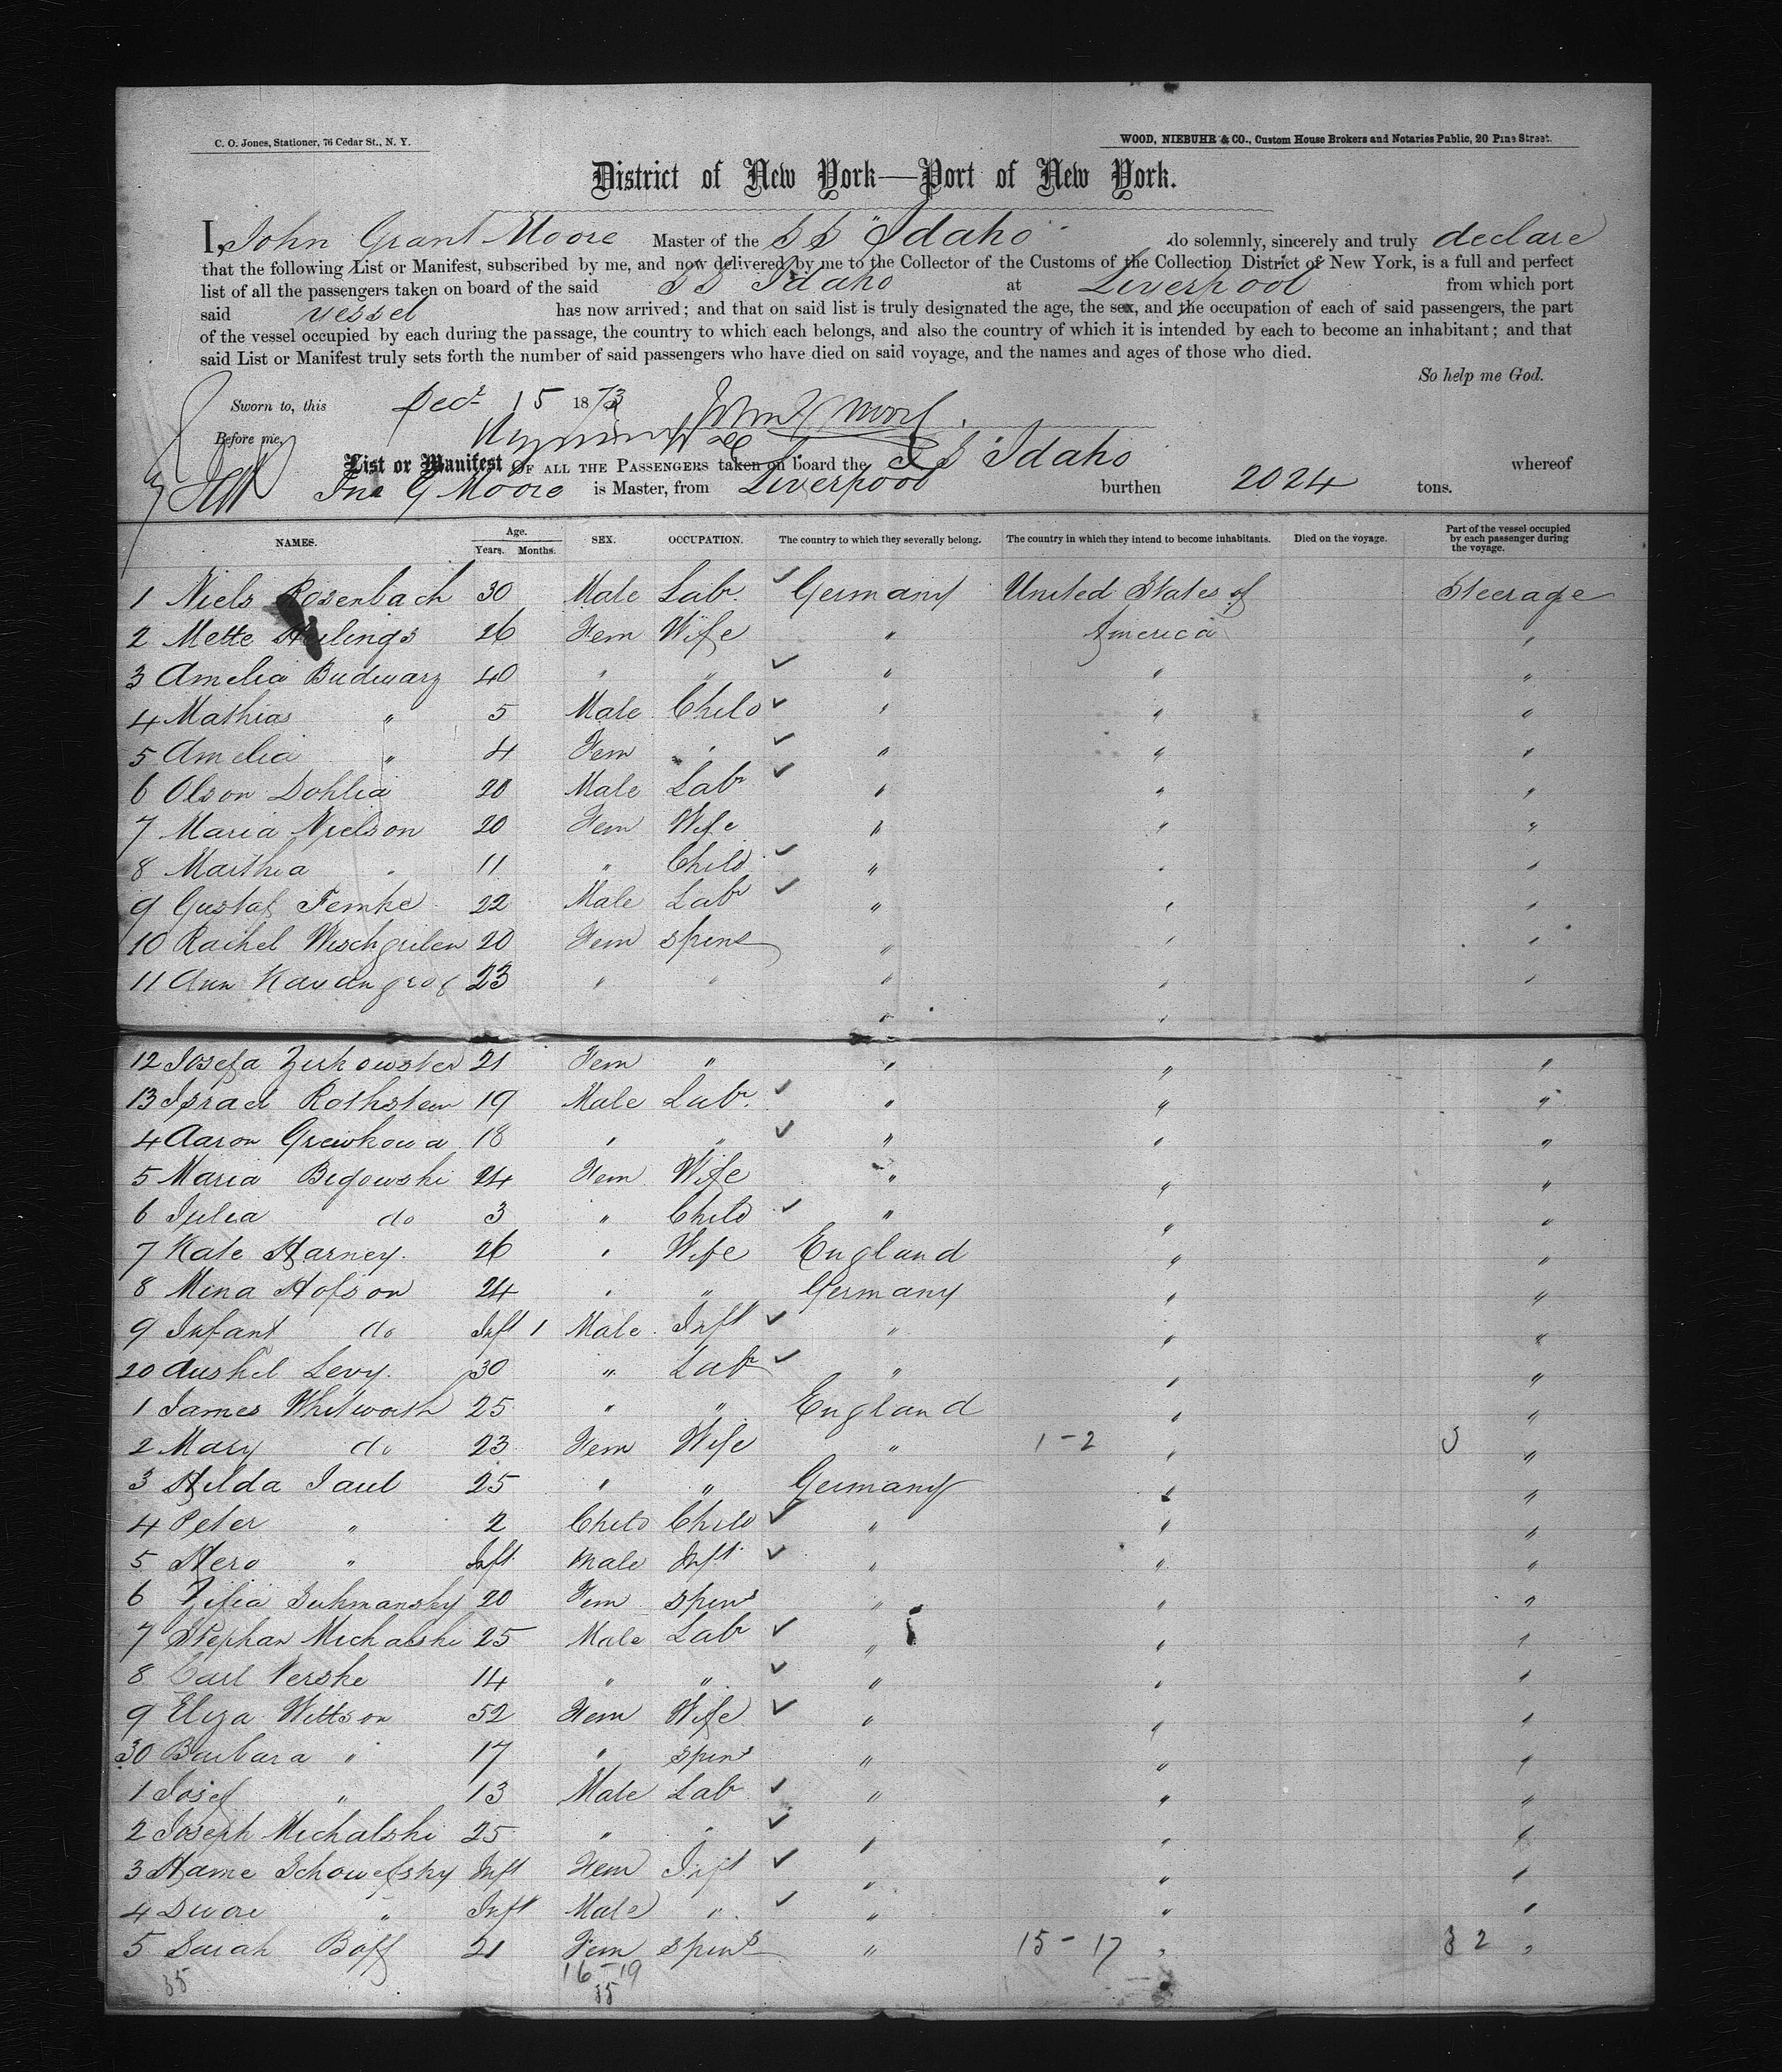 C. O. Jones, Stationer, 76 Cedar St., N. Y.
WOOD, NIEBUHR & CO., Custom House Brokers and Notaries Public, 20 Pine Street.
District of New York—Port of New York.
I, John Grant Moore Master of the SS "Idaho" do solemnly, sincerely and truly declare
that the following List or Manifest, subscribed by me, and now delivered by me to the Collector of the Customs of the Collection District of New York, is a full and perfect
list of all the passengers taken on board of the said SS Idaho at Liverpool from which port
said vessel has now arrived; and that on said list is truly designated the age, the sex, and the occupation of each of said passengers, the part
of the vessel occupied by each during the passage, the country to which each belongs, and also the country of which it is intended by each to become an inhabitant; and that
said List or Manifest truly sets forth the number of said passengers who have died on said voyage, and the names and ages of those who died.
So help me God.
Sworn to, this Decr 15 1873 Jno G Moore.
Before me,
List or Manifest OF ALL THE PASSENGERS taken on board the SS Idaho whereof
Jno G Moore is Master, from Liverpool burthen 2024 tons.
NAMES. Age. Years. Months. SEX. OCCUPATION. The country to which they severally belong. The country in which they intend to become inhabitants. Died on the voyage. Part of the vessel occupied by each passenger during the voyage.
1 Niels Rosenbach 30 Male Labr Germany United States of Steerage
2 Mette Heilings 26 Fem Wife " America "
3 Amelia Budwarz 40 " " " " "
4 Mathias " 5 Male Child " " "
5 Amelia " 4 Fem " " " "
6 Olson Dohlia 20 Male Labr " " "
7 Maria Nielson 20 Fem Wife " " "
8 Marthia " 11 " Child " " "
9 Gustaf Femke 22 Male Labr " " "
10 Rachel Wischgrilen 20 Fem spins " " "
11 Ann 23 " " " " "
" "
12 Josefa Zirkowster 21 Fem " " " "
13 Israel Rothstein 19 Male Labr " " "
4 Aaron Grewkowa 18 " " " " "
5 Maria Bigowski 24 Fem Wife " " "
6 Julia do 3 " Child " " "
7 Kate Harney. 26 " Wife England " "
8 Mina Hofson 24 " " Germany " "
9 Infant do Inft 1 Male Inft " " "
20 Aushel Levy. 30 " Labr " " "
1 James Whitworth 25 " " England " "
2 Mary do 23 Fem Wife " 1-2 " "
3 Hilda Paul 25 " " Germany " "
4 Peter " 2 Child Child " " "
5 Hero " Inft Male Inft " " "
6 Zifia Suhmansky 20 Fem spins " " "
7 Stephan Michalski 25 Male Lab " " "
8 Carl Nerske 14 " " " " "
9 Eliza Wittson 52 Fem Wife " " "
30 Barbara " 17 " spins " " "
1 Josef " 13 Male Lab " " "
2 Joseph Michalski 25 " " " " "
3 Hame Schowefsky Inft Fem Inft " " "
4 Dwore " Inft Male " " " "
5 Sarah Boff 21 Fem spins " 15-17 " 32 "
35 16-19
35